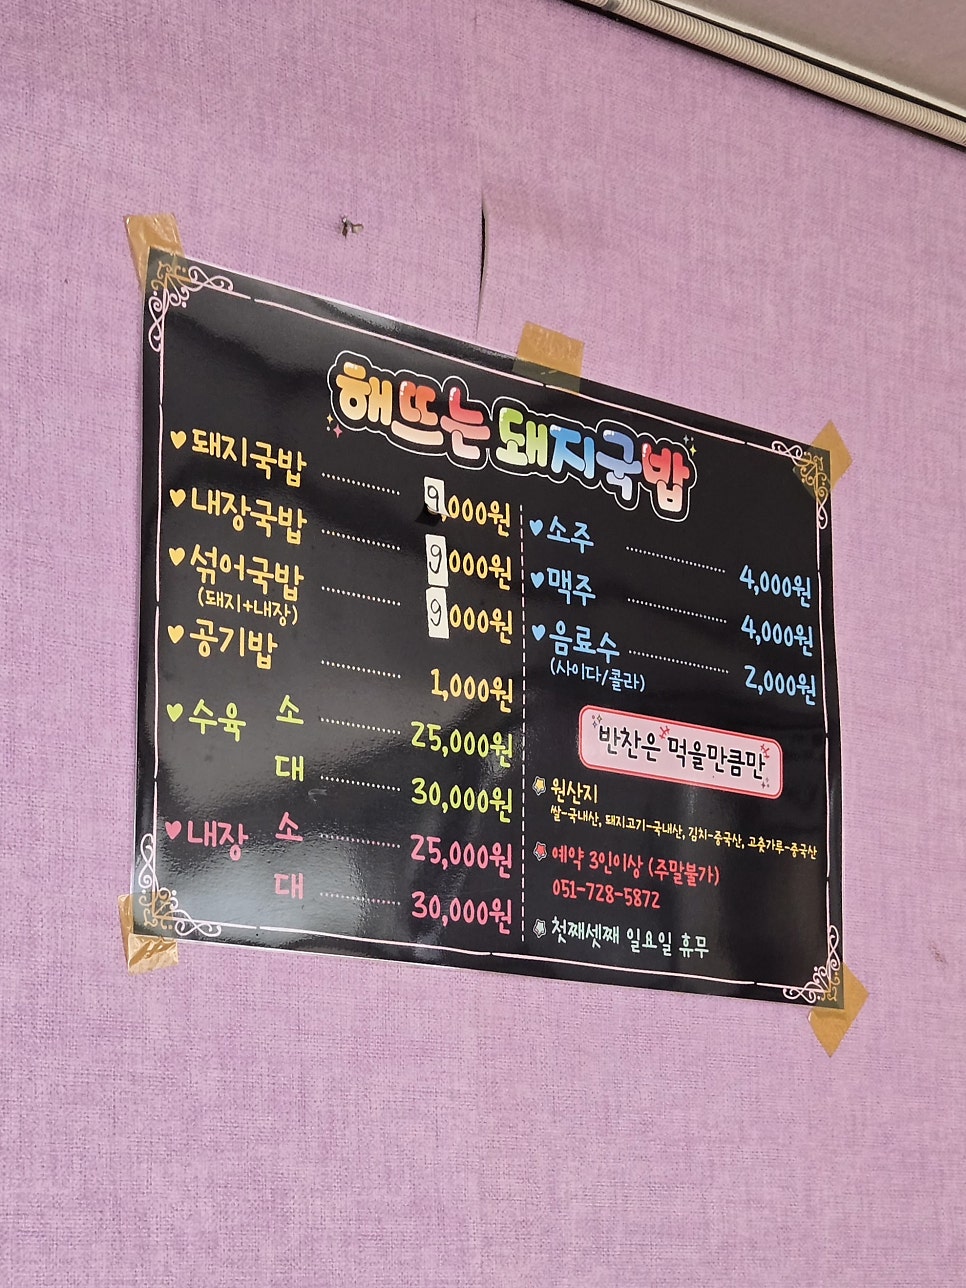 해뜨는 돼지국밥
돼지국밥 9,000원
내장국밥 9,000원
섞어국밥 9,000원
(돼지+내장)
공기밥 1,000원
수육 소 25,000원
대 30,000원
내장 소 25,000원
대 30,000원
소주 4,000원
맥주 4,000원
음료수 2,000원
(사이다/콜라)
반찬은 먹을만큼만
원산지
쌀-국내산, 돼지고기-국내산, 김치-중국산, 고춧가루-중국산
예약 3인이상 (주말불가)
051-728-5872
첫째셋째 일요일 휴무